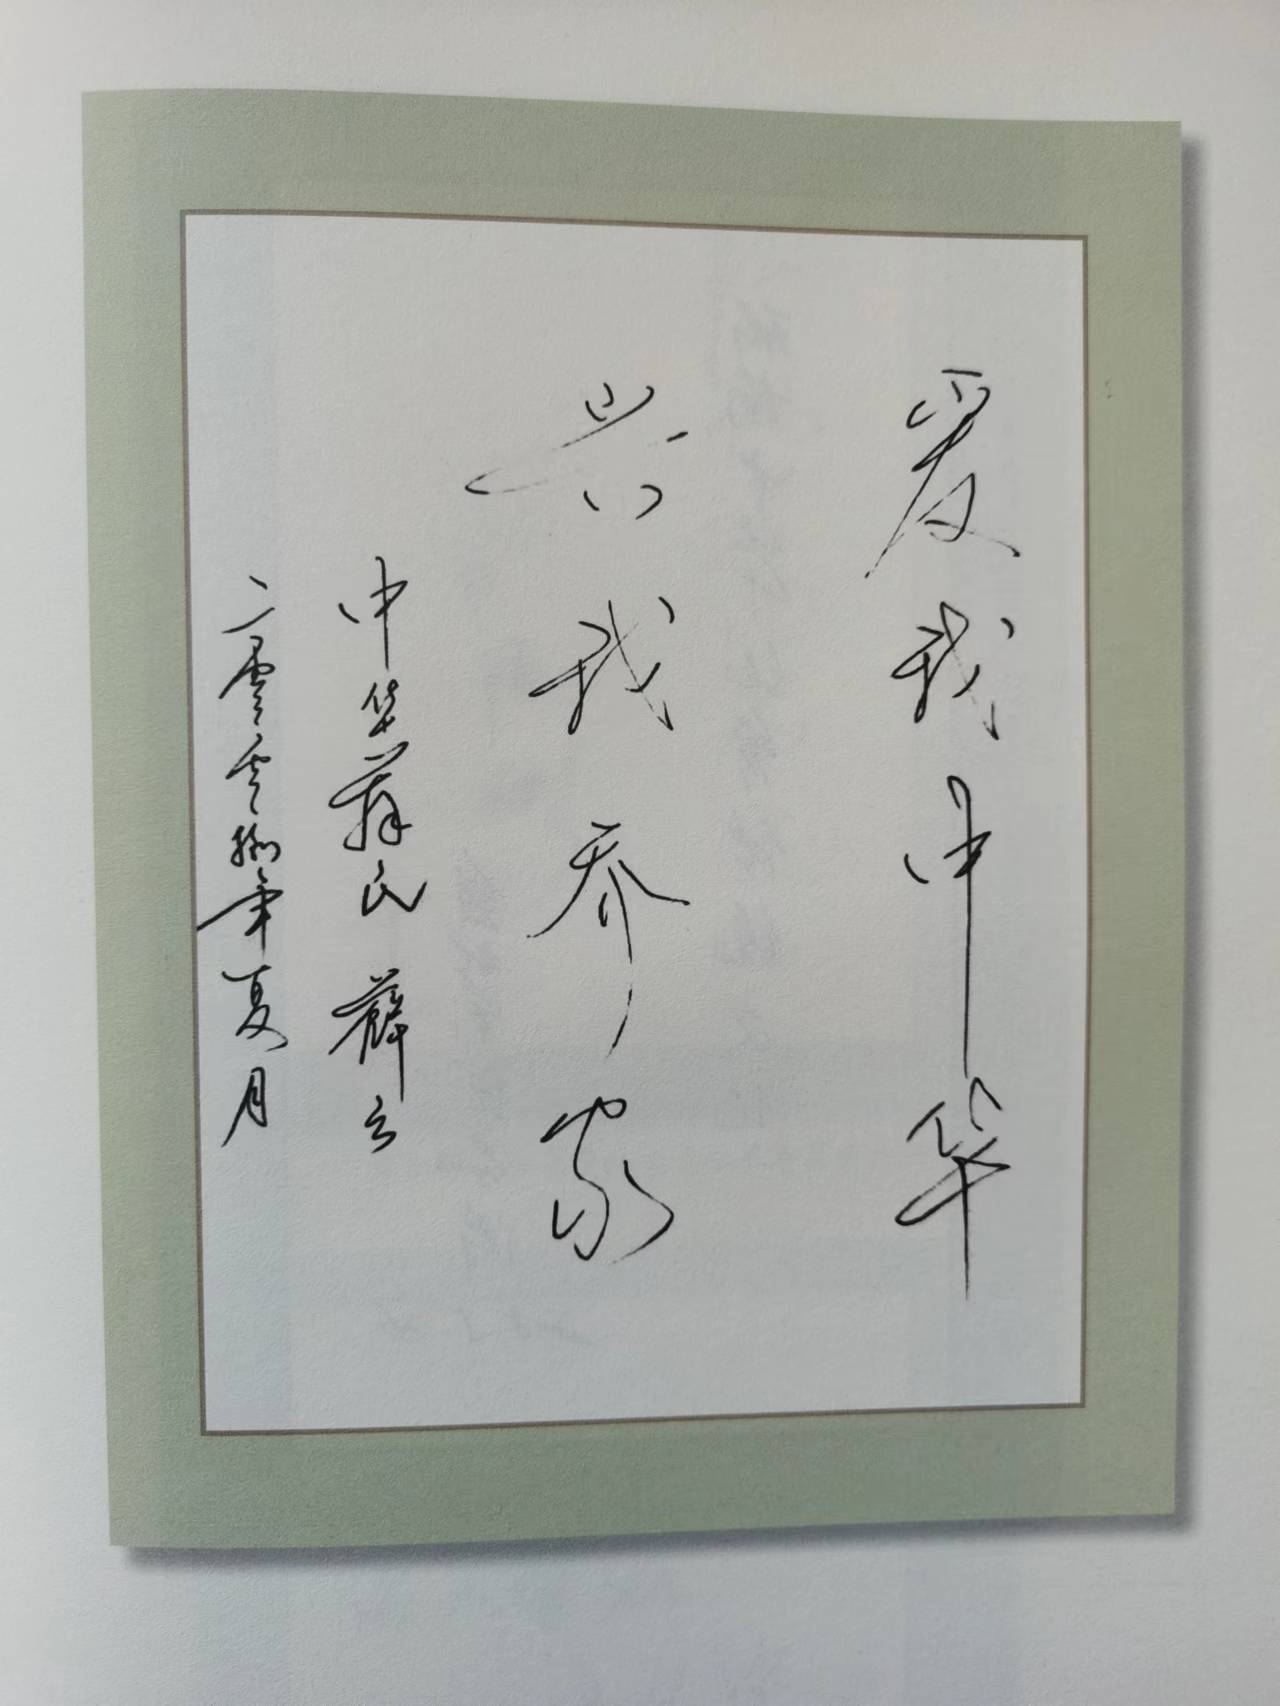 爱我中华
兴我乔家
中华蔡氏 薛云
二零零捌年夏月